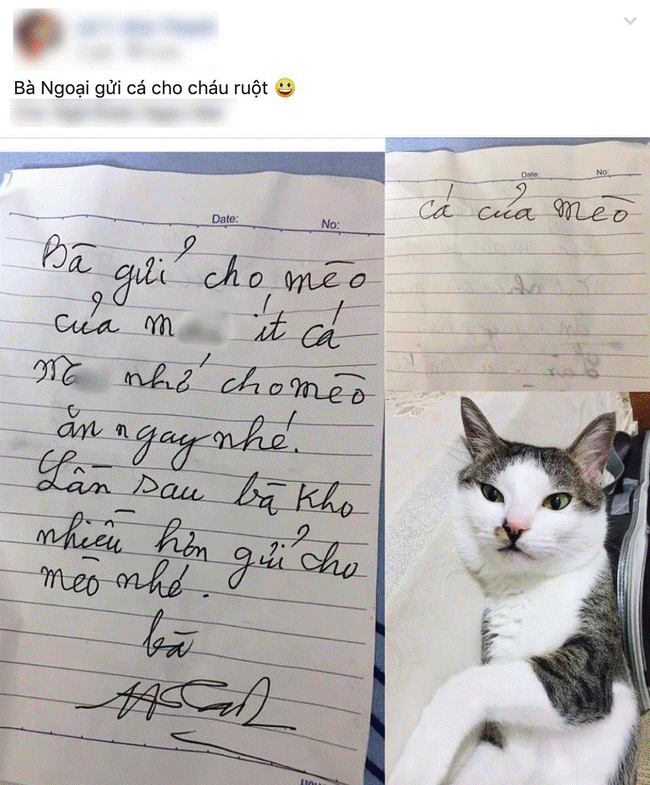 Bà Ngoại gửi cá cho cháu ruột 😃
Date: No:
Bà gửi cho mèo
của m ít cá
nhớ cho mèo
ăn ngay nhé.
Lần sau bà kho
nhiều hơn gửi cho
mèo nhé.
bà
Date: No:
cá của mèo